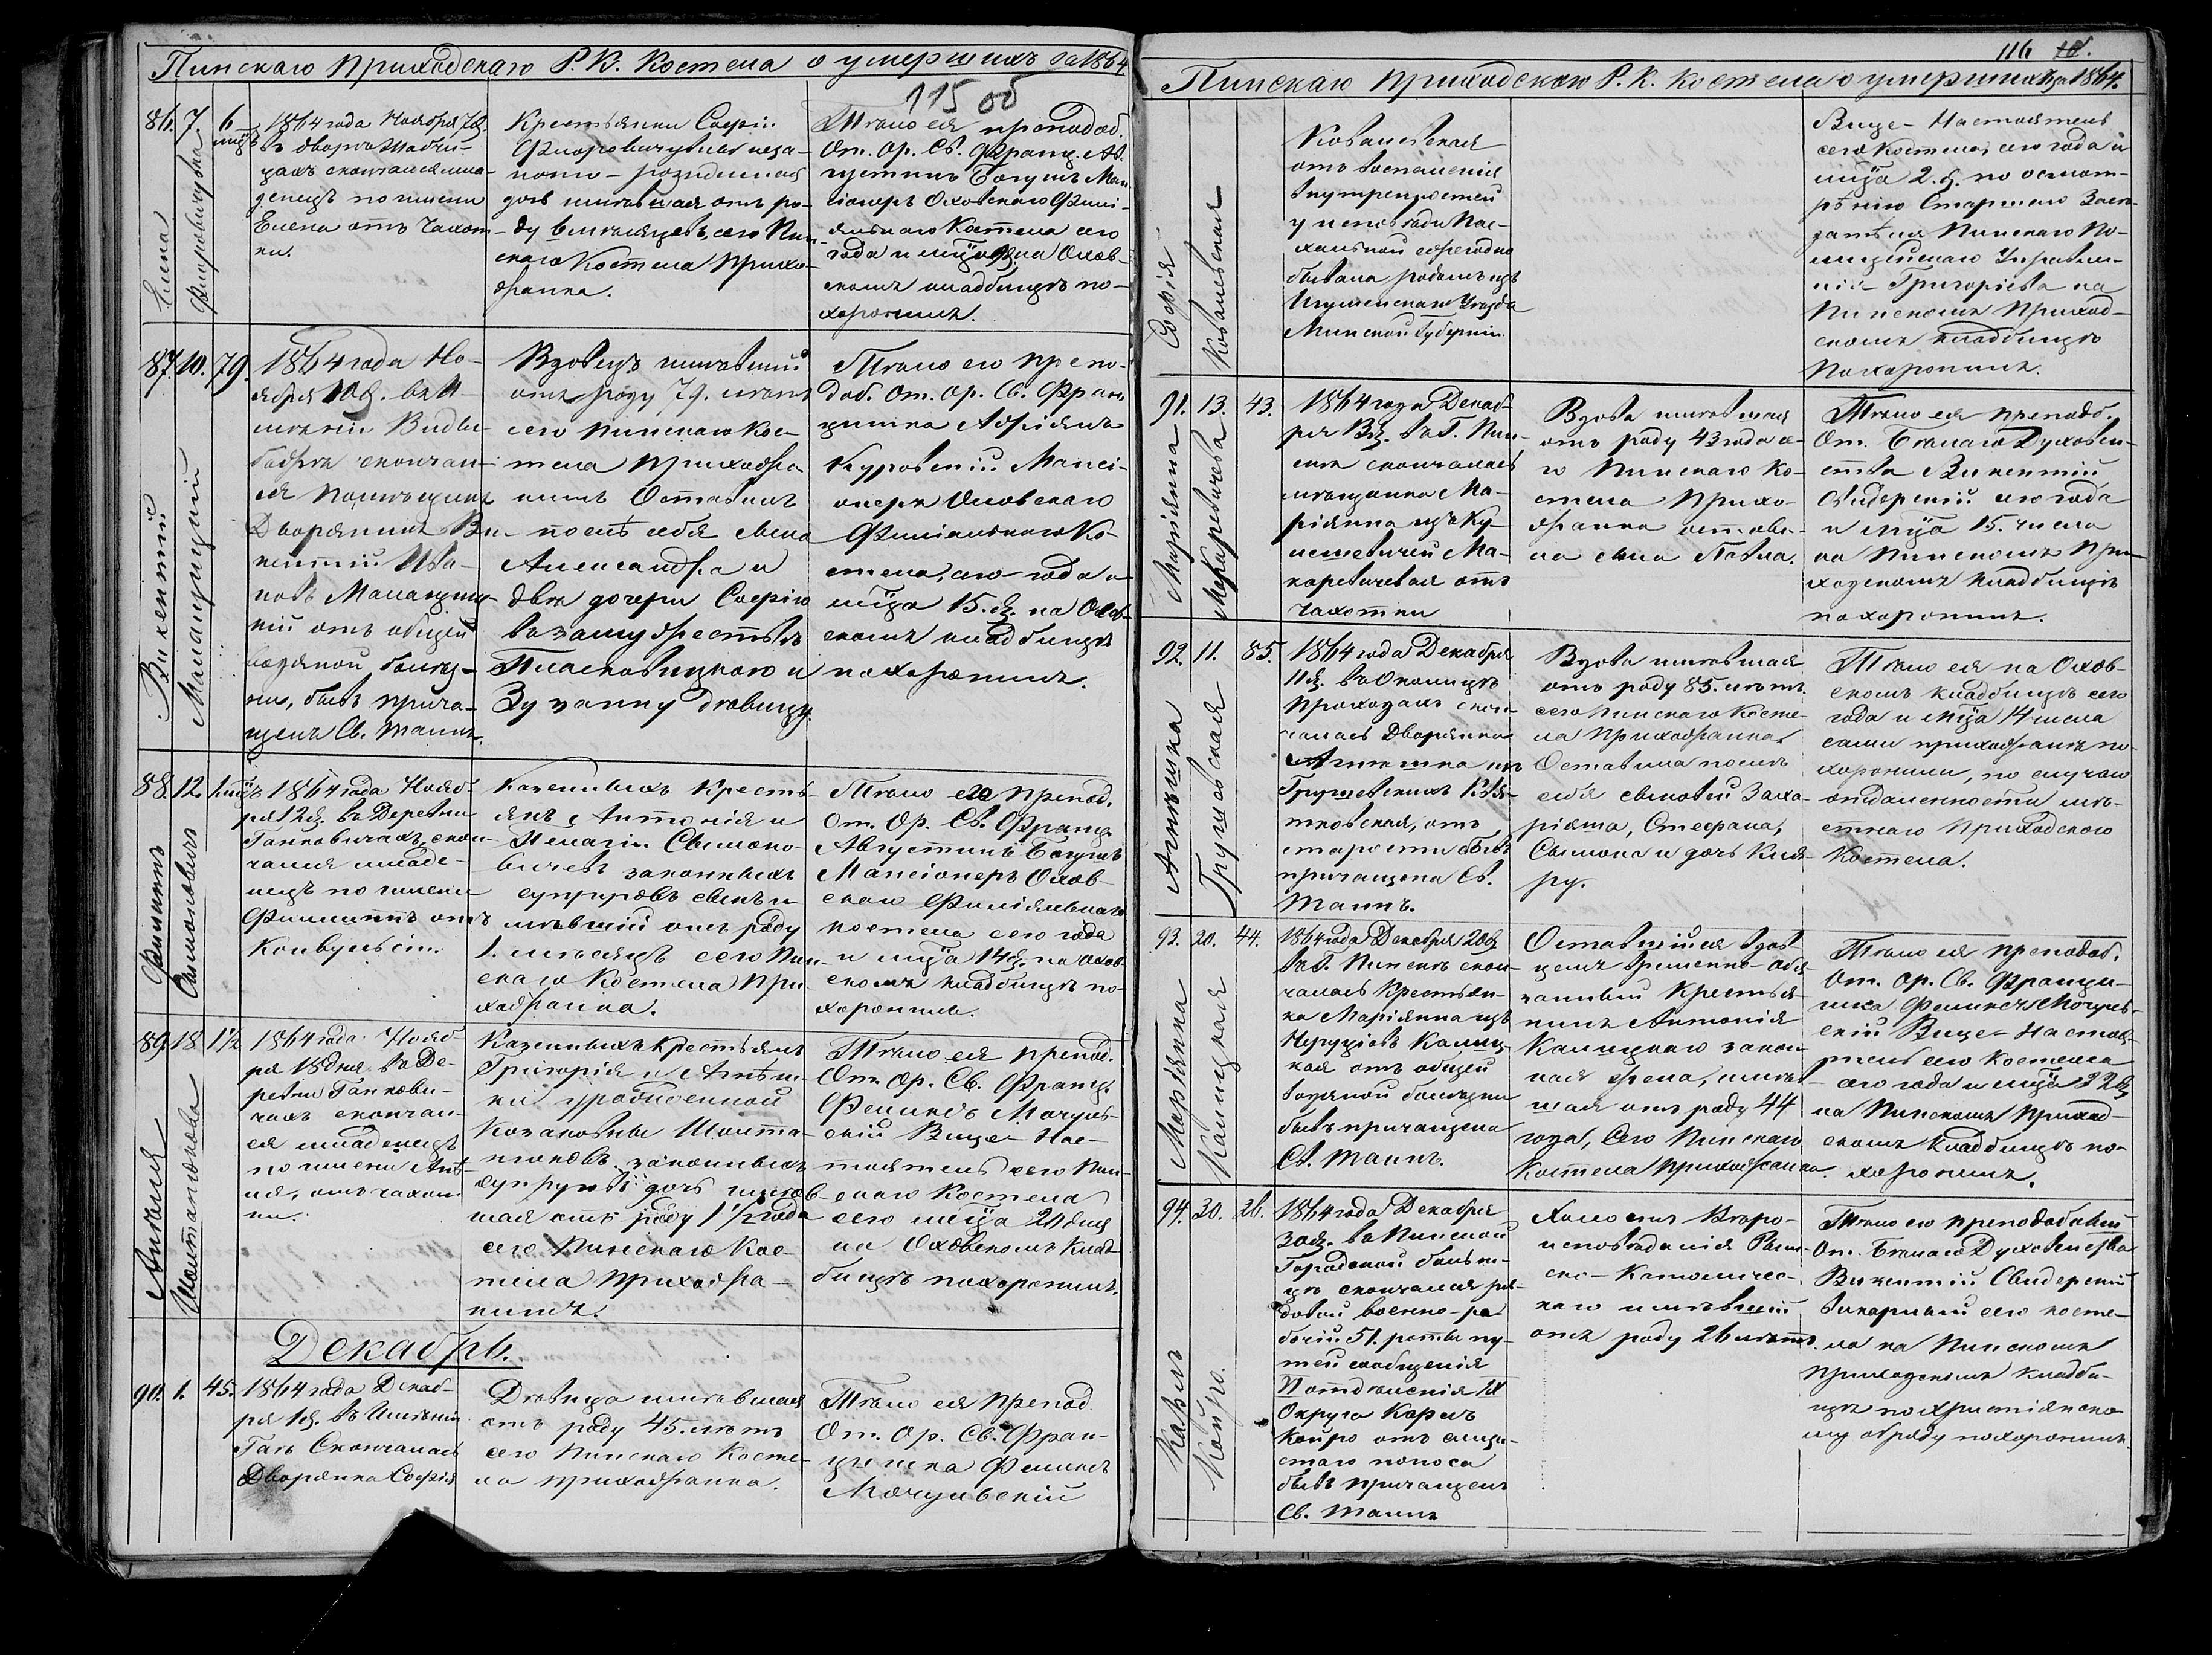 Пинскаго приходскаго Р. К. Костела о умершихъ за 1864
115 об
86. 7 6 мцъ
Елена
1864 года Ноября 7 д.
скончался мла-
денецъ по имени
Елена отъ чахот-
ки.
Крестьянки Софіи
дочь имѣвшая отъ ро-
ду 6 мѣсяцевъ, сего Пин-
скаго Костела прихо-
жанка.
Тѣло ея преподоб.
От. Ор. Св. Франц. Ав-
густинъ Богушъ Ман-
сіонеръ Оховскаго Филі-
яльнаго Костела сего
года и мца на Охов-
скомъ кладбищѣ по-
хоронилъ.
87. 10. 79.
Викентій
1864 года Но-
ября 10 д. въ И-
мѣніи Виды-
боры скончал-
ся помѣщикъ
Дворянинъ Ви-
кентій Ива-
новъ
отъ общей
водяной болѣз-
ни, бывъ прича-
щенъ Св. Таинъ.
Вдовецъ имѣвшій
отъ роду 79. лѣтъ
сего Пинскаго Кос-
тела прихожа-
нинъ Оставилъ
послѣ себя сына
Александра и
двѣ дочери Софію
въ замужествѣ
и
Зузанну дѣвицу.
Тѣло его препо-
доб. От. Ор. Св. Фран-
цишка Адріянъ
Мансі-
онеръ Оховскаго
Филіяльнаго Ко-
стела, сего года и
мца 15. д. на Охов-
скомъ кладбищѣ
похоронилъ.
88. 12. 1 мцъ
Филиппъ
Симоновичъ
1864 года Нояб-
ря 12 д. въ Деревни
Ганковичахъ скон-
чался младе-
нецъ по имени
Филиппъ отъ
Конвульсіи.
Казенныхъ кресть-
янъ Антонія и
Пелагіи Сымоно-
вичевъ законныхъ
супруговъ сынъ и-
мѣвшій отъ роду
1. мѣсяцъ сего Пин-
скаго Костела при-
хожанка.
Тѣло его препод.
От. Ор. Св. Франц.
Августинъ Богушъ
Мансіонеръ Охов-
скаго Филіяльнаго
костела сего года
и мца 14 д. на Охов-
скомъ кладбищѣ по-
хоронилъ.
89. 18. 1 1/2
1864 года Нояб-
ря 18 дня въ Де-
ревни Ганкови-
чахъ скончал-
ся младенецъ
по имени
отъ чахот-
ки.
Казенныхъ крестьянъ
Григорія и
урожденной
законныхъ
супруговъ дочь имѣв-
шая отъ роду 1 1/2 года
сего Пинскаго Кос-
тела прихожа-
нинъ.
Тѣло ея препод.
От. Ор. Св. Франц.
Феликсъ Мочуль-
скій Вице-Нас-
тоятель сего Пин-
скаго Костела
сего мца 20 дня
на Оховскомъ клад-
бищѣ похоронилъ.
Декабрь.
90. 1. 45.
1864 года Декаб-
ря 1 д. въ Имѣніи
Скончалась
Дворянка Софія
Дѣвица имѣвшая
отъ роду 45. лѣтъ
сего Пинскаго Косте-
ла прихожанка.
Тѣло ея препод.
От. Ор. Св. Фран-
цишка Феликсъ
Мочульскій
116
Пинскаго приходскаго Р. К. Костела о умершихъ за 1864.
Софія
Ковалевская
Ковалевская
отъ воспаленія
внутренностей
у исповѣди Пас-
хальной ежегодно
бывала родомъ изъ
Игуменскаго Уѣзда
Минской Губерніи.
Вице-Настоятель
сего Костела сего года и
мца 2. д. по осмот-
рѣнію Старшаго Засѣ-
дателя Пинскаго По-
лицейскаго Управле-
нія Григорьева на
Пинскомъ Приход-
скомъ кладбищѣ
Похоронилъ.
91. 13. 43.
Маріянна
Макаревичева
1864 года Декаб-
ря 13 д. въ Г. Пин-
скѣ скончалась
мѣщанка Ма-
ріянна изъ
Ма-
каревичевая отъ
чахотки
Вдова имѣвшая
отъ роду 43 года се-
го Пинскаго Ко-
стела Прихо-
жанка остави-
ла сына Павла.
Тѣло ея преподоб.
От. Бѣлаго Духовен-
ства Викентій
Свидерскій сего года
и мца 15. числа
на Пинскомъ При-
ходскомъ кладбищѣ
похоронилъ.
92. 11. 85.
Грушевская
1864 года Декабря
11 д. въ Околицѣ
скон-
чалась Дворянка
изъ
Грушевскихъ
отъ
старости бывъ
причащена Св.
Таинъ.
Вдова имѣвшая
отъ роду 85. лѣтъ.
сего Пинскаго Косте-
ла Прихожанка
Оставила послѣ
себя сыновей Заха-
ріяша, Стефана,
Сымона и дочь
Тѣло ея на Охов-
скомъ кладбищѣ сего
года и мца 14 числа
сами прихожане по-
хоронили, по случаю
отдаленности мѣ-
стнаго Приходского
Костела.
93. 20. 44.
Маріянна
Калицкая
1864 года Декабря 20 д.
въ Г. Пинскѣ скон-
чалась Крестьян-
ка Маріянна изъ
Калиц-
кая отъ общей
водяной болѣзни
бывъ причащена
Св. Таинъ.
Оставшійся вдов-
цемъ временно-обя-
занный Крестья-
нинъ Антонія
Калицкаго закон-
ная жена, имѣв-
шая отъ роду 44
года, Сего Пинскаго
Костела Прихожанка.
Тѣло ея преподоб.
От. Ор. Св. Франци-
шка Феликсъ Мочуль-
скій Вице-Настоя-
тель сего Костела
сего года и мца 22 д.
на Пинскомъ Приход-
скомъ Кладбищѣ по-
хоронилъ.
94. 30. 26.
Карлъ
Койро.
1864 года Декабря
30 д. въ Пинской
Городской больни-
цѣ скончался ря-
довой военно-ра-
бочій 51. роты пу-
тей сообщенія
Округа Карлъ
Койро отъ слизи-
стаго поноса
бывъ причащенъ
Св. Таинъ
Холостъ Вѣро-
исповѣданія Рим-
ско-Католичес-
каго имѣвшій
отъ роду 26 лѣтъ.
Тѣло его преподобный
От. Бѣлаго Духовенства
Викентій Свидерскій
викарный сего косте-
ла на Пинскомъ
приходскомъ кладби-
щѣ по Христіянско-
му обряду похоронилъ.